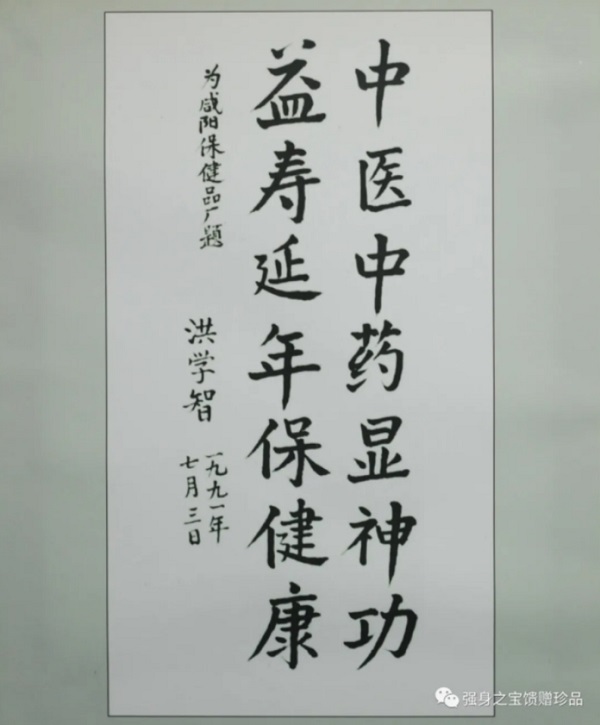 中医中药显神功
益寿延年保健康
为咸阳保健品厂题
洪学智
一九九一年
七月三日
强身之宝馈赠珍品